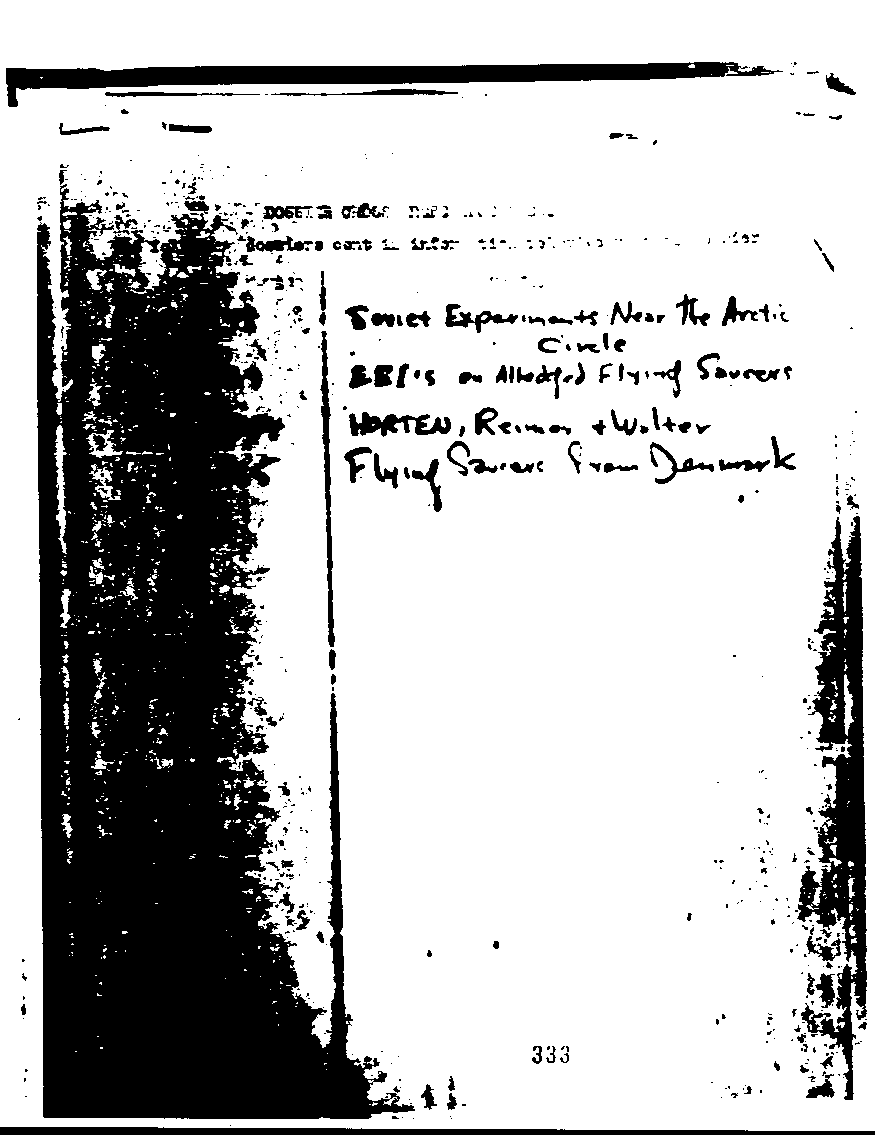 DOSSIER CROSS
dossiers contain information
Soviet Experiments Near The Arctic
Circle
EEI's on Alledged Flying Saucers
HORTEN, Reimar + Walter
Flying Saucers from Denmark
333